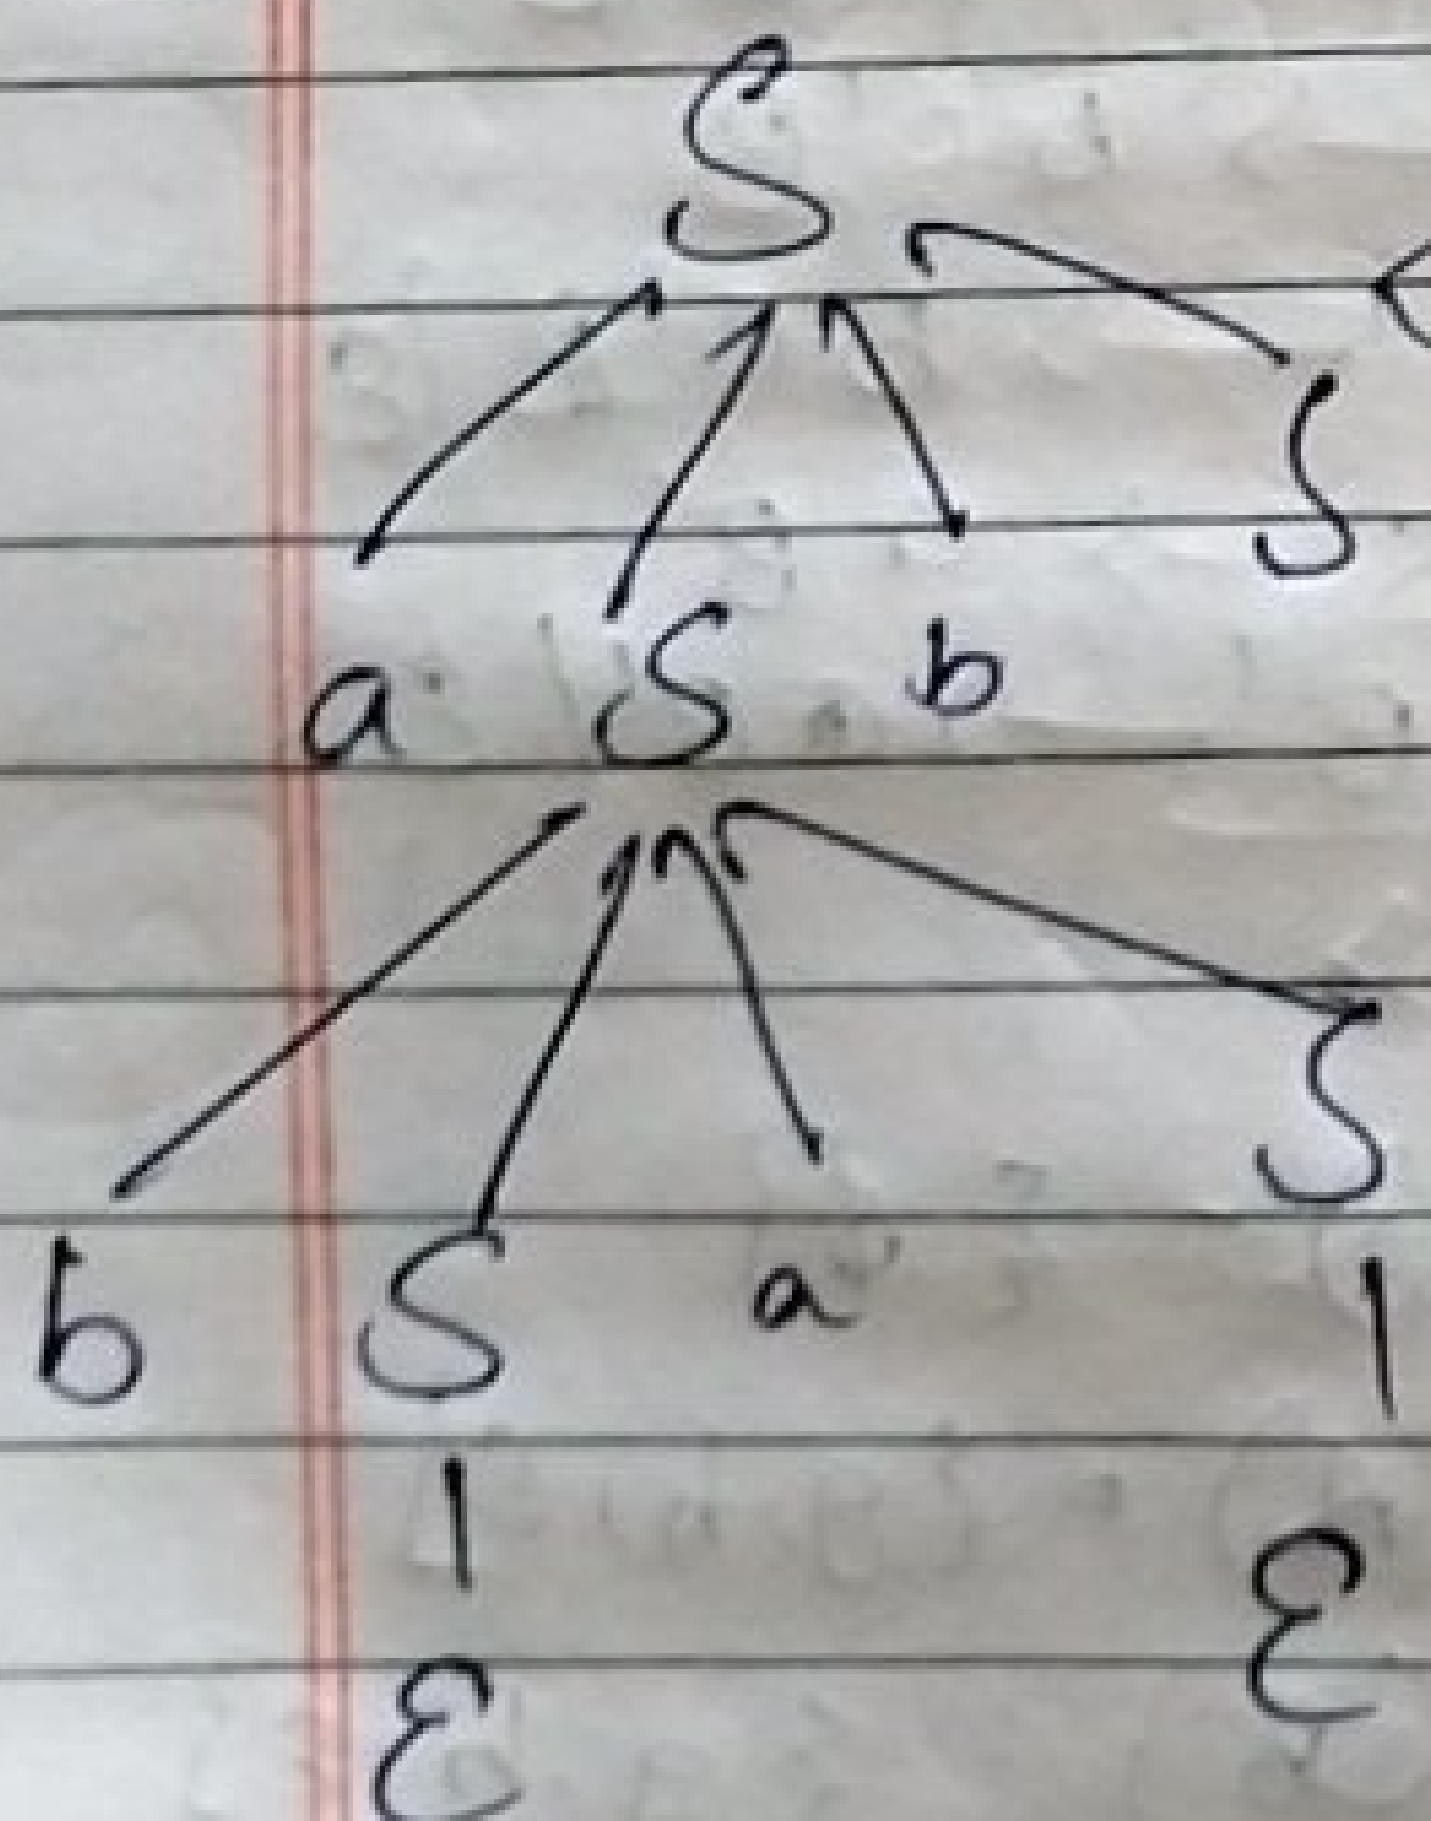 S
S
a S b
S
b S a
ε
ε